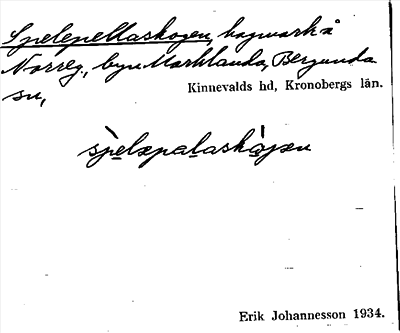 Spelepellaskogen, hagmark å
Norreg., byn Marklanda, Bergunda
sn,
Kinnevalds hd, Kronobergs län.
spelepalaskogen
Erik Johannesson 1934.